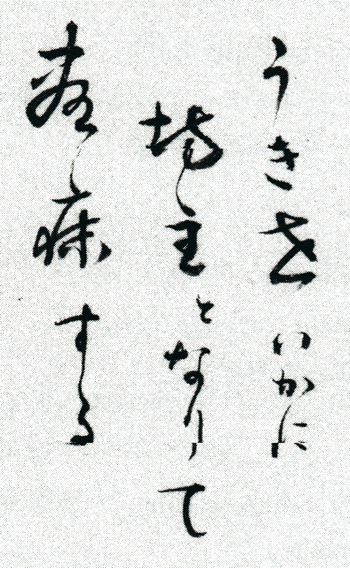 うき世いかに
坊主となりて
晝寐する